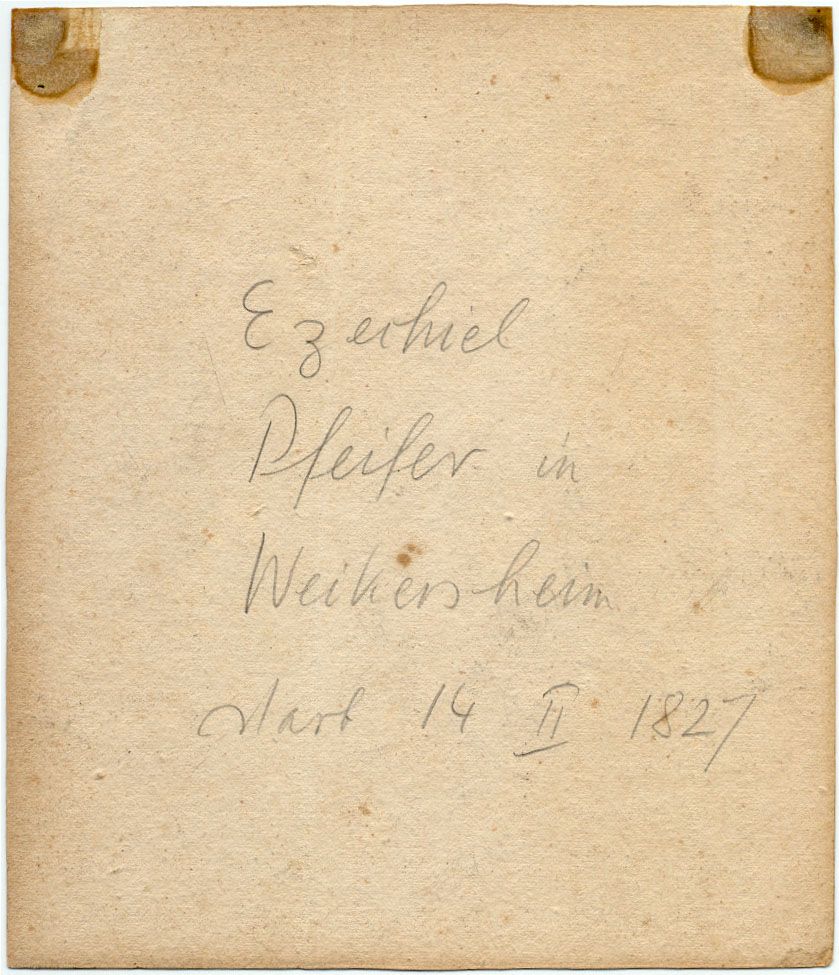 Ezechiel
Pfeifer in
Weikersheim
starb 14 II 1827